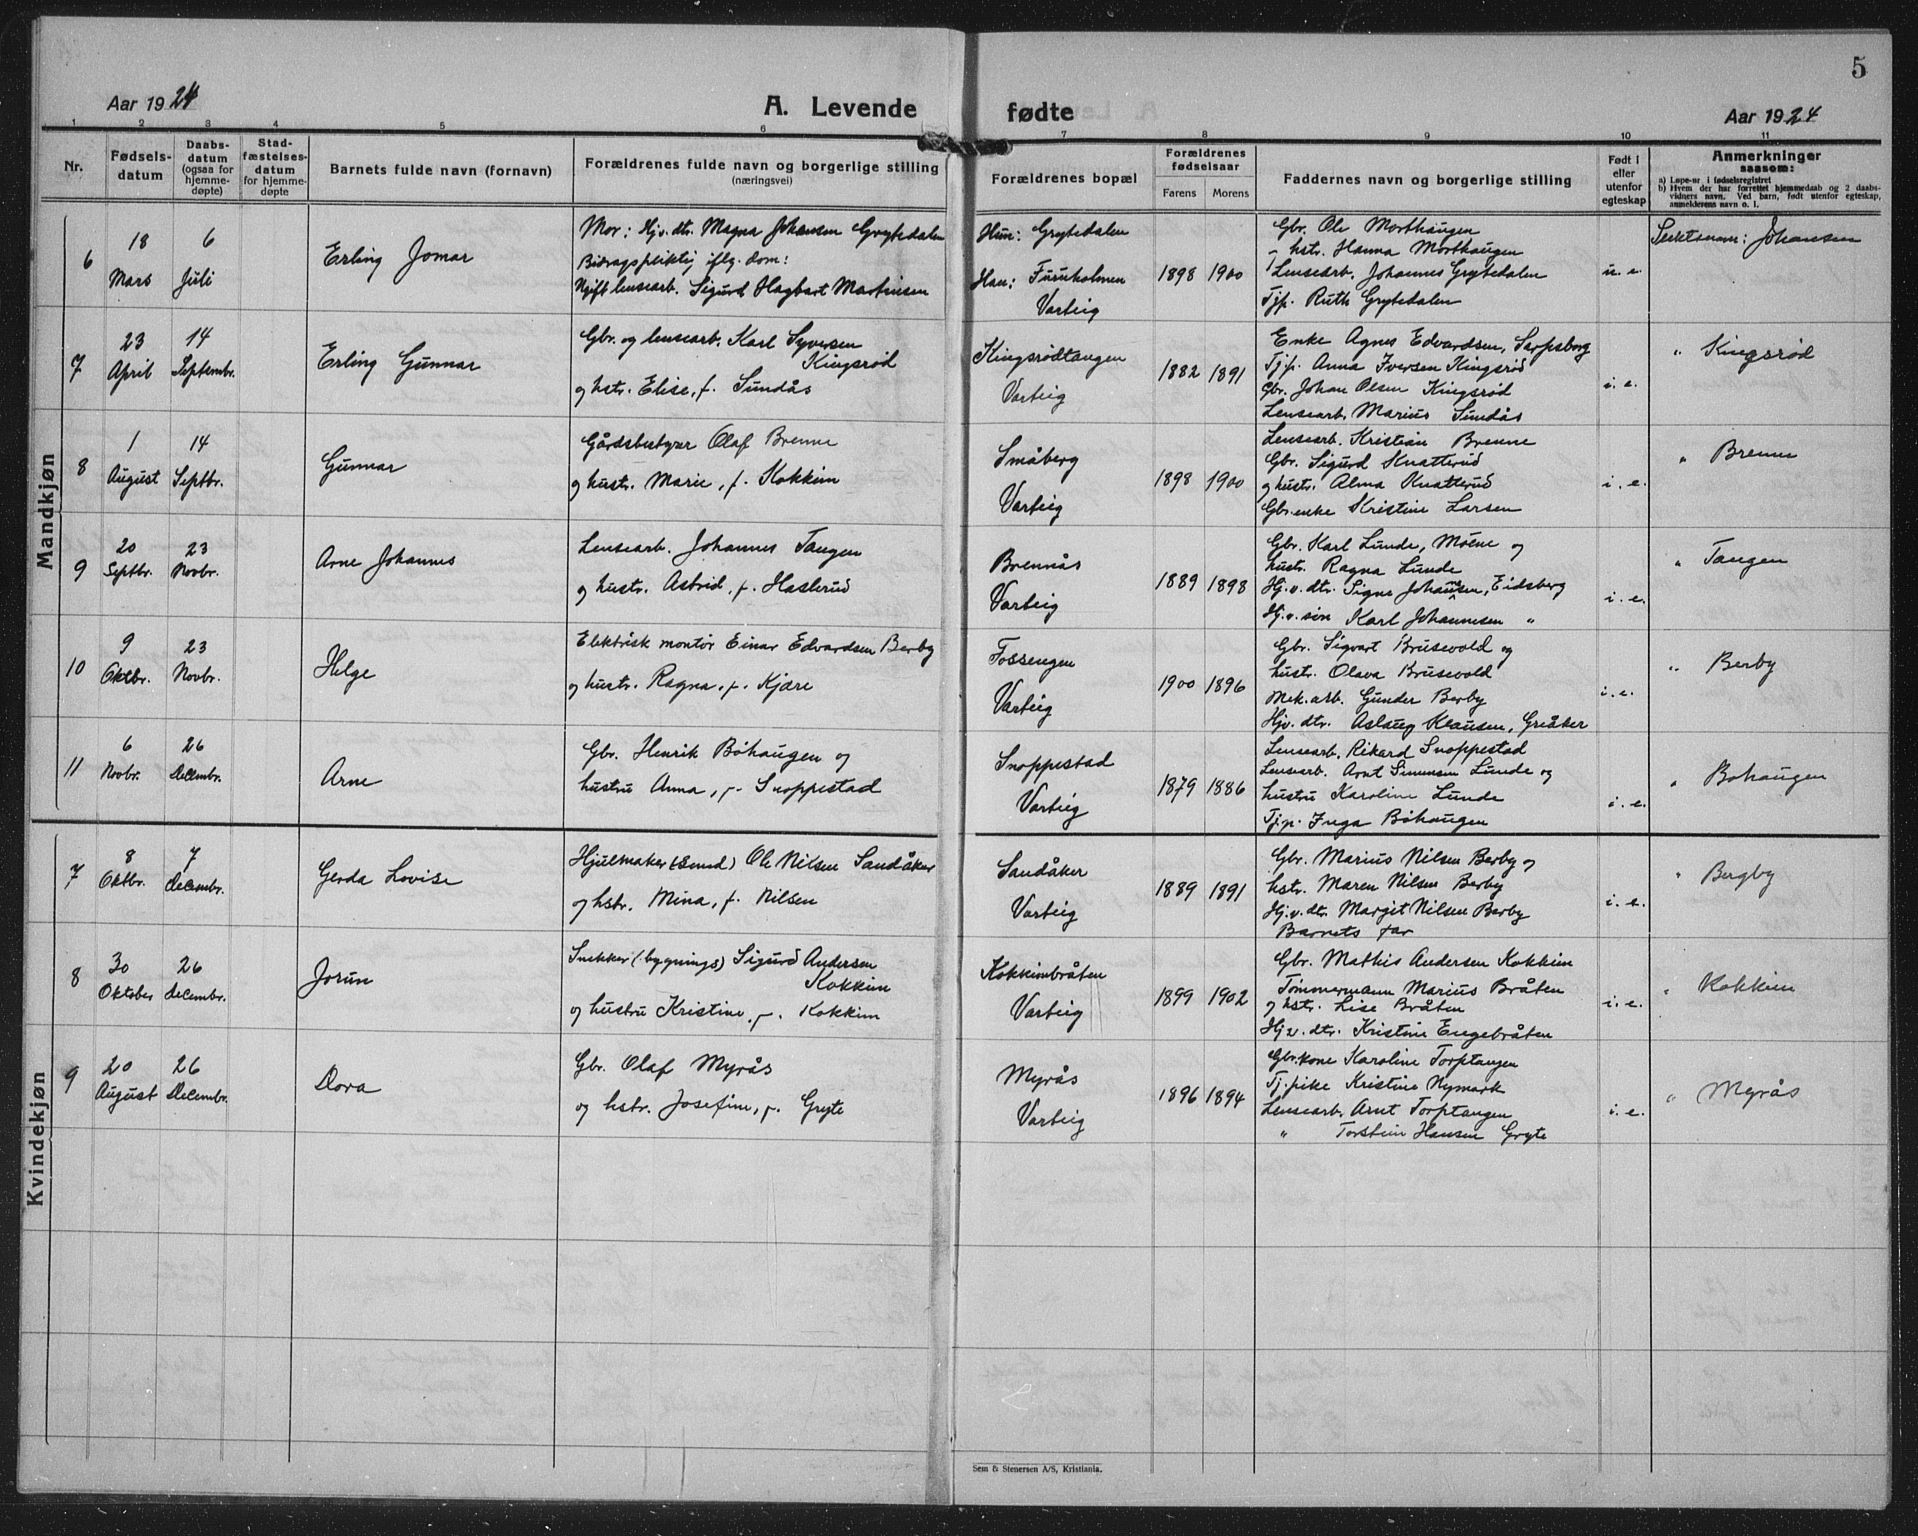 5
Aar 1924 A. Levende fødte Aar 1924
1 2 3 4 5 6 7 8 9 10 11
Nr. Fødselsdatum Daabsdatum (ogsaa for hjemmedøpte) Stadfæstelsesdatum for hjemmedøpte Barnets fulde navn (fornavn) Forældrenes fulde navn og borgerlige stilling (næringsvei) Forældrenes bopæl Forældrenes fødselsaar Farens Morens Faddernes navn og borgerlige stilling Født i eller utenfor egteskap Anmerkninger saasom:
a) Løpe-nr i fødselsregistret
b) Hvem der har forrettet hjemmedaab og 2 daabsvidners navn. Ved barn, født utenfor egteskap, anmelderens navn o. l.
Mandkjøn
6 18 Mars 6 Juli Erling Jomar
Mor: Hj.v. dtr. Magna Johansen Grytedalen
Bidragspliktig iflg. dom:
Ugift lensearb. Sigurd Hagbart Martinsen
Hun: Grytedalen
Han: Furuholmen
Varteig
1898 1900
Gbr. Ole Morthaugen
hstr. Hanna Morthaugen
Lensearb. Johannes Grytedalen
Tjp. Ruth Grytedalen
u. e.
Slektsnavn: Johansen
7 23 April 14 Septembr. Erling Gunnar
Gbr. og lensearb. Karl Syversen
Kingsrød
og hstr. Elise, f. Sundås
Kingsrødtangen
Varteig
1882 1891
Enke Agnes Edvardsen, Sarpsborg
Tj.p. Anna Iversen Kingsrød
Gbr. Johan Olsen Kingsrød
Lensearb. Marius Sundås
i. e.
" Kingsrød
8 1 August 14 Septbr. Gunnar
Gårdsbestyrer Olaf Brenne
og hustr. Marie, f. Kokkim
Småberg
Varteig
1898 1900
Lensearb. Kristian Brenne
Gbr. Sigurd Knatterud
og hustr. Alma Knatterud
Gbr.enke Kristine Larsen
i. e.
" Brenne
9 20 Septbr. 23 Novbr. Arne Johannes
Lensearb. Johannes Tangen
og hustr. Astrid, f. Haslerud
Brennås
Varteig
1889 1898
Gbr. Karl Lunde, Moene og
hustr. Ragna Lunde
Hj.v. dtr. Signe Johannesen, Eidsberg
Hj.v. søn Karl Johannesen "
i. e.
" Tangen
10 9 Oktbr. 23 Novbr. Helge
Elektrisk montør Einar Edvardsen Berby
og hustr. Ragna, f. Kjære
Fossengen
Varteig
1900 1896
Gbr. Sigvart Brusevold og
hustr. Olava Brusevold
Mek. arb. Gunder Berby
Hjv. dtr. Aslaug Klausen, Greåker
i. e.
" Berby
11 6 Novbr. 26 Decembr. Arne
Gbr. Henrik Bøhaugen og
hustru Anna, f. Snoppestad
Snoppestad
Varteig
1879 1886
Lensearb. Rikard Snoppestad
Lensearb. Arnt Simensen Lunde og
hustru Karoline Lunde
Tj.p. Inga Bøhaugen
i. e.
" Bøhaugen
Kvindekjøn
7 8 Oktbr. 7 Decembr. Gerda Lovise
Hjulmaker (Smed) Ole Nilsen Sandåker
og hstr. Mina, f. Nilsen
Sandåker
Varteig
1889 1891
Gbr. Marius Nilsen Berby og
hstr. Maren Nilsen Berby
Hj.v. dtr. Margit Nilsen Berby
Barnets far
i. e.
" Bergby
8 30 Oktober 26 Decembr. Jorun
Snekker (bygnings) Sigurd Andersen
Kokkim
og hustru Kristine, f. Kokkim
Kokkimbråten
Varteig
1899 1902
Gbr. Mathis Andersen Kokkim
Tømmermann Marius Bråten
og hstr. Lise Bråten
Hj.v. dtr. Kristine Engebråten
i. e.
" Kokkim
9 20 August 26 Decembr. Dora
Gbr. Olaf Myrås
og hstr. Josefine, f. Gryte
Myrås
Varteig
1896 1894
Gbr.kone Karoline Torptangen
Tj.pike Kristine Nymark
Lensearb. Arnt Torptangen
" Torstein Hansen Gryte
i. e.
" Myrås
Sem & Stenersen A/S, Kristiania.